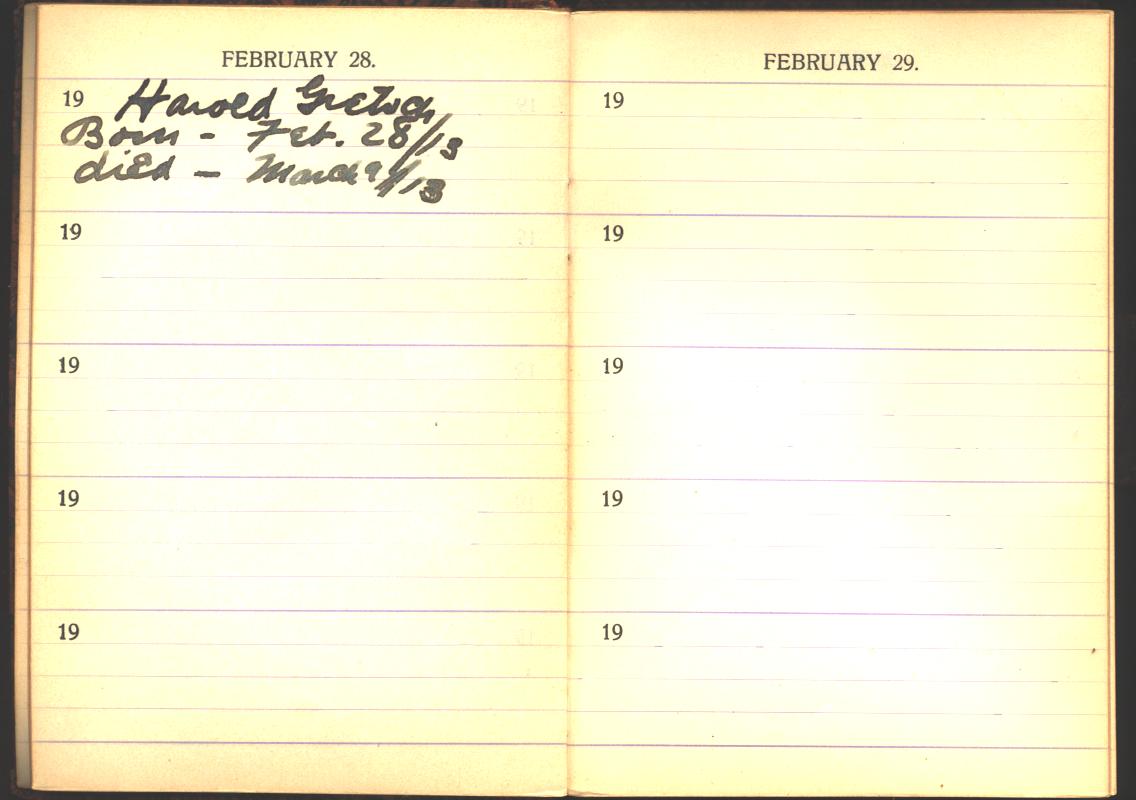 FEBRUARY 28.
19 Harold Gretsch
Born - Feb. 28/13
died - March 9/13
19
19
19
19
FEBRUARY 29.
19
19
19
19
19